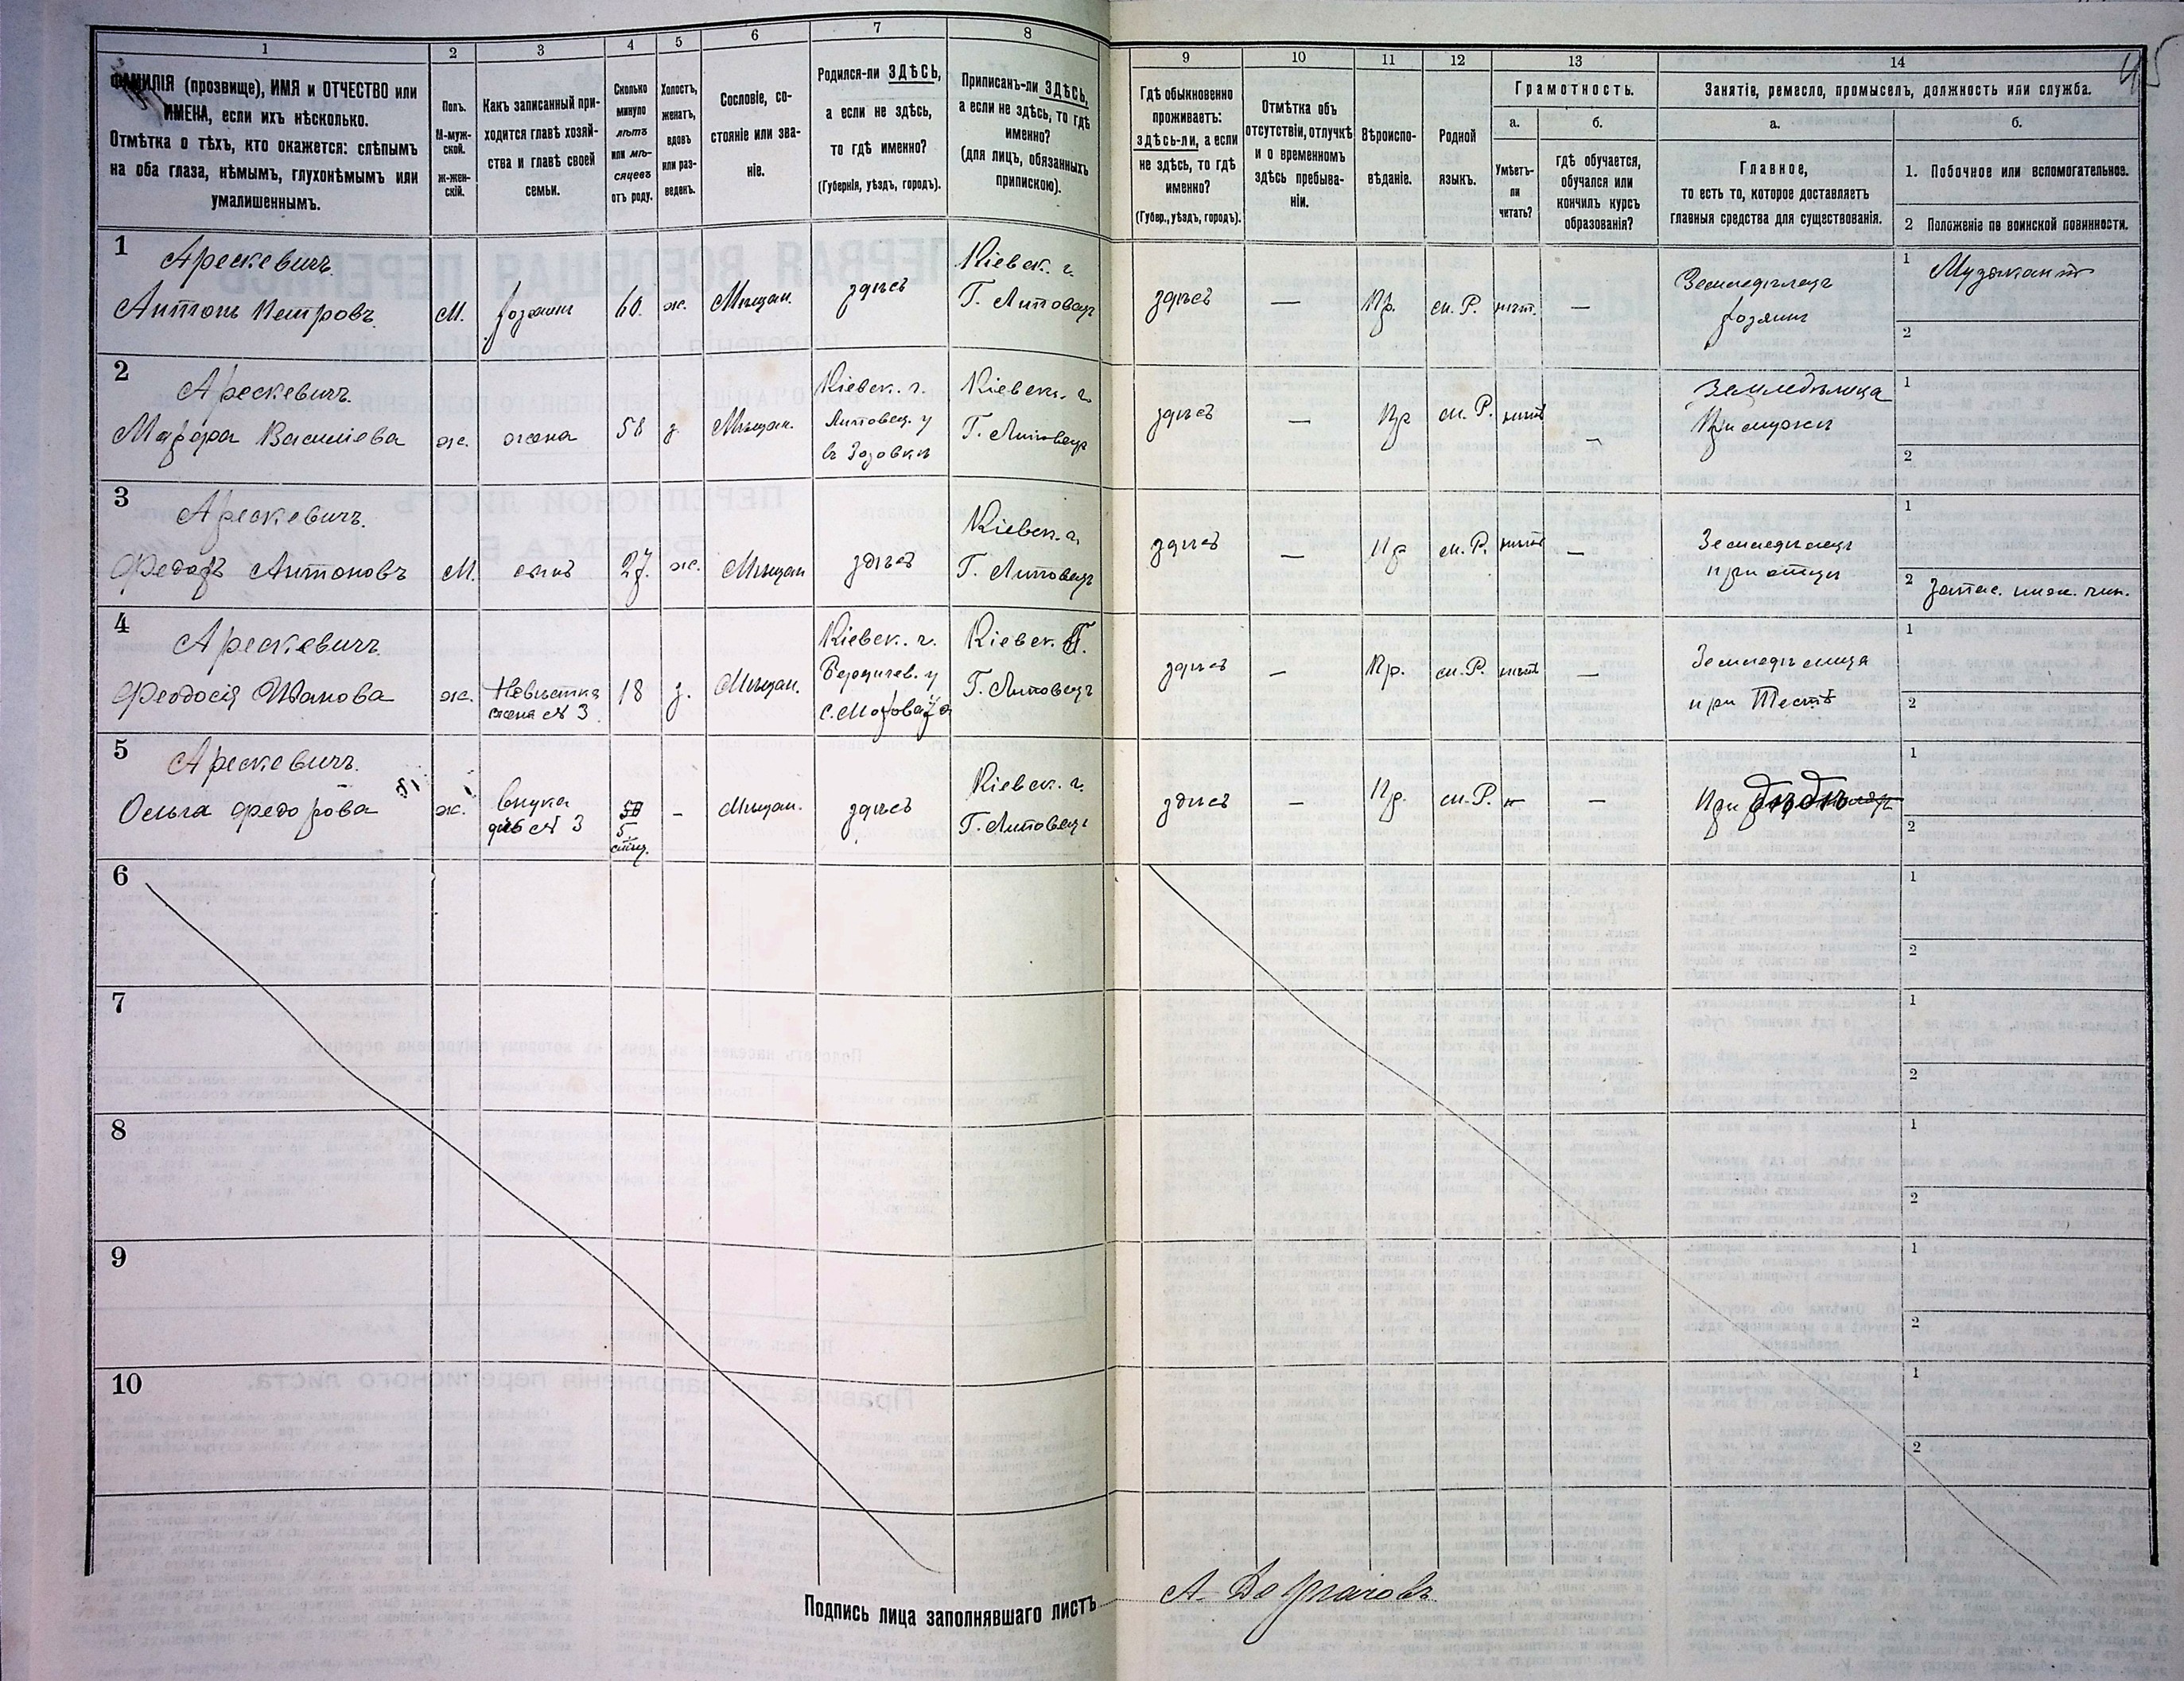 1
2
3
4
5
6
7
8
ФАМИЛІЯ (прозвище), ИМЯ и ОТЧЕСТВО или
ИМЕНА, если ихъ нѣсколько.
Отмѣтка о тѣхъ, кто окажется: слѣпымъ
на оба глаза, нѣмымъ, глухонѣмымъ или
умалишеннымъ.
Полъ.
М-муж-
ской.
Ж-жен-
скій.
Какъ записанный при-
ходится главѣ хозяй-
ства и главѣ своей
семьи.
Сколько
минуло
лѣтъ
или мѣ-
сяцевъ
отъ роду.
Холостъ,
женатъ,
вдовъ
или раз-
веденъ.
Сословіе, со-
стояніе или зва-
ніе.
Родился-ли ЗДѢСЬ,
а если не здѣсь,
то гдѣ именно?
(Губернія, уѣздъ, городъ).
Приписанъ-ли ЗДѢСЬ,
а если не здѣсь, то гдѣ
именно?
(для лицъ, обязанныхъ
припискою).
9
10
11
12
13
14
Гдѣ обыкновенно
проживаетъ:
здѣсь-ли, а если
не здѣсь, то гдѣ
именно?
(Губер., уѣздъ, городъ).
Отмѣтка объ
отсутствіи, отлучкѣ
и о временномъ
здѣсь пребыва-
ніи.
Вѣроиспо-
вѣданіе.
Родной
языкъ.
Грамотность.
а.
б.
Умѣетъ-
ли
читать?
гдѣ обучается,
обучался или
кончилъ курсъ
образованія?
Занятіе, ремесло, промыселъ, должность или служба.
а.
б.
Главное,
то есть то, которое доставляетъ
главныя средства для существованія.
1. Побочное или вспомогательное.
2 Положеніе по воинской повинности.
45
1
Арескевичъ
Антонъ Петровъ
М.
хозяинъ
60.
ж.
Мѣщан.
здѣсь
Кіевск. г.
Г. Липовецъ
здѣсь
—
Пр.
м. Р.
нѣт.
—
Земледѣлецъ
хозяинъ
1 Музыкантъ
2
2
Арескевичъ
Марфа Васильева
ж.
жена
58
з.
Мѣщан.
Кіевск. г.
Липовец. у
в Зозовкѣ
Кіевск. г.
Г. Липовецъ
здѣсь
—
Пр
м. Р.
нѣтъ
—
Земледѣлица
При мужѣ
1
2
3
Арескевичъ
Федоръ Антоновъ
М.
сынъ
27.
ж.
Мѣщан
здѣсь
Кіевск. г.
Г. Липовецъ
здѣсь
—
Пр
м. Р.
нѣтъ
—
Земледѣлецъ
при отцѣ
1
2 Запас. ниж. чин.
4
Арескевичъ
Феодосія Иванова
ж.
Невѣстка
жена № 3
18
з.
Мѣщан.
Кіевск. г.
Бердичев. у
Кіевск. Г.
Г. Липовецъ
здѣсь
—
Пр.
м. Р.
нѣтъ
—
Земледѣлица
при Тестѣ
1
2
5
Арескевичъ
Ольга Федорова
ж.
внука
дчь № 3
5
—
Мѣщан.
здѣсь
Кіевск. г.
Г. Липовецъ
здѣсь
—
Пр.
м. Р.
н
—
При дѣдѣ
1
2
6
1
2
7
1
2
8
1
2
9
1
2
10
1
2
Подпись лица заполнявшаго листъ